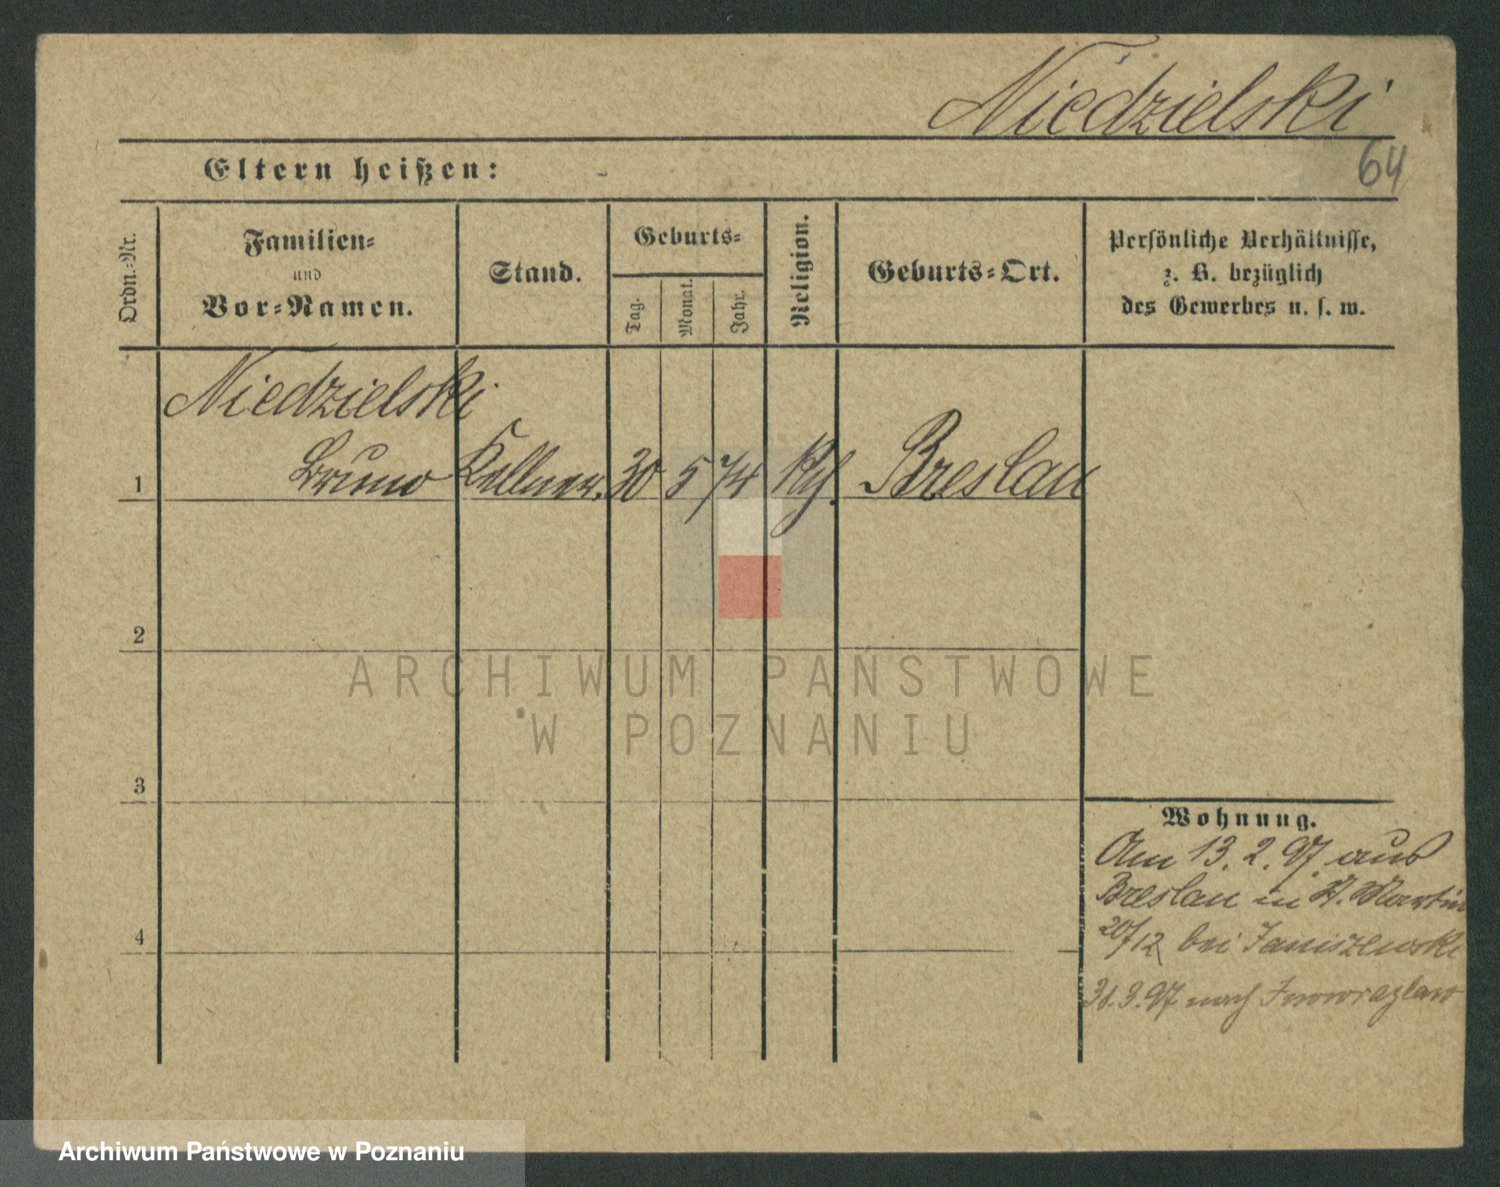 Niedzielski
64
Eltern heißen:
Ordn.-Nr.
Familien-
und
Vor-Namen.
Stand.
Geburts-
Tag.
Monat.
Jahr.
Religion.
Geburts-Ort.
Persönliche Verhältnisse,
z. B. bezüglich
des Gewerbes u. s. w.
Niedzielski
1 Bruno Kellner. 30 5 74 Breslau
2
3
4
Wohnung.
Am 13. 2. 97 aus
Breslau in St. Martin
20/12 bei Janiszewski
31.3.97 nach Inowrazlaw
ARCHIWUM PAŃSTWOWE
W POZNANIU
Archiwum Państwowe w Poznaniu